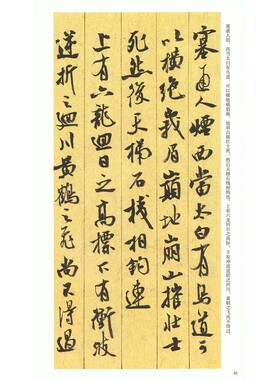 塞通人烟，西当太白有鸟道，可以横绝峨眉巅。地崩山摧壮士死，然后天梯石栈相钩连。上有六龙回日之高标，下有冲波逆折之回川。黄鹤之飞尚不得过，
塞通人煙西當太白有鳥道可
以橫絕峩眉巔地崩山摧壯士
死然後天梯石棧相鉤連
上有六龍迴日之高標下有衝波
逆折之迴川黃鶴之飛尚不得過